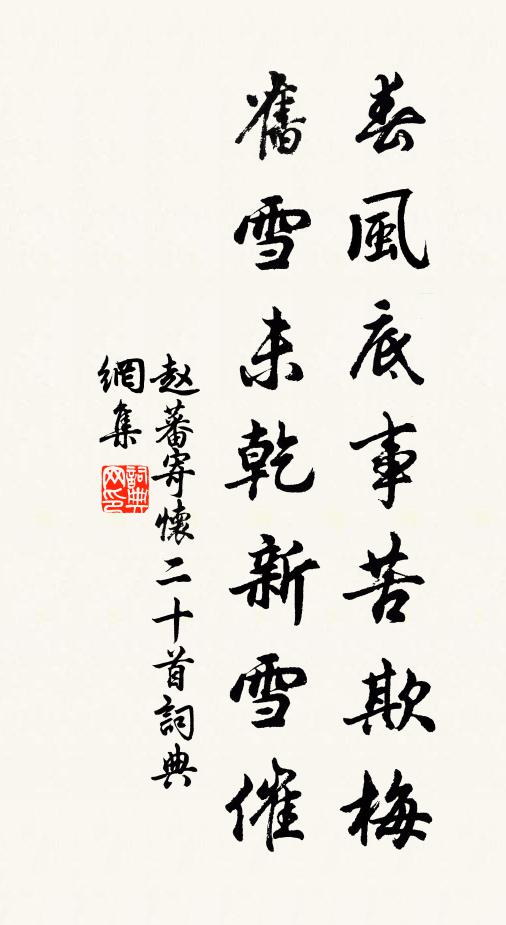 春風底事苦欺梅
舊雪未乾新雪催
赵蕃寄懷二十首詞典
網集
詞典網印